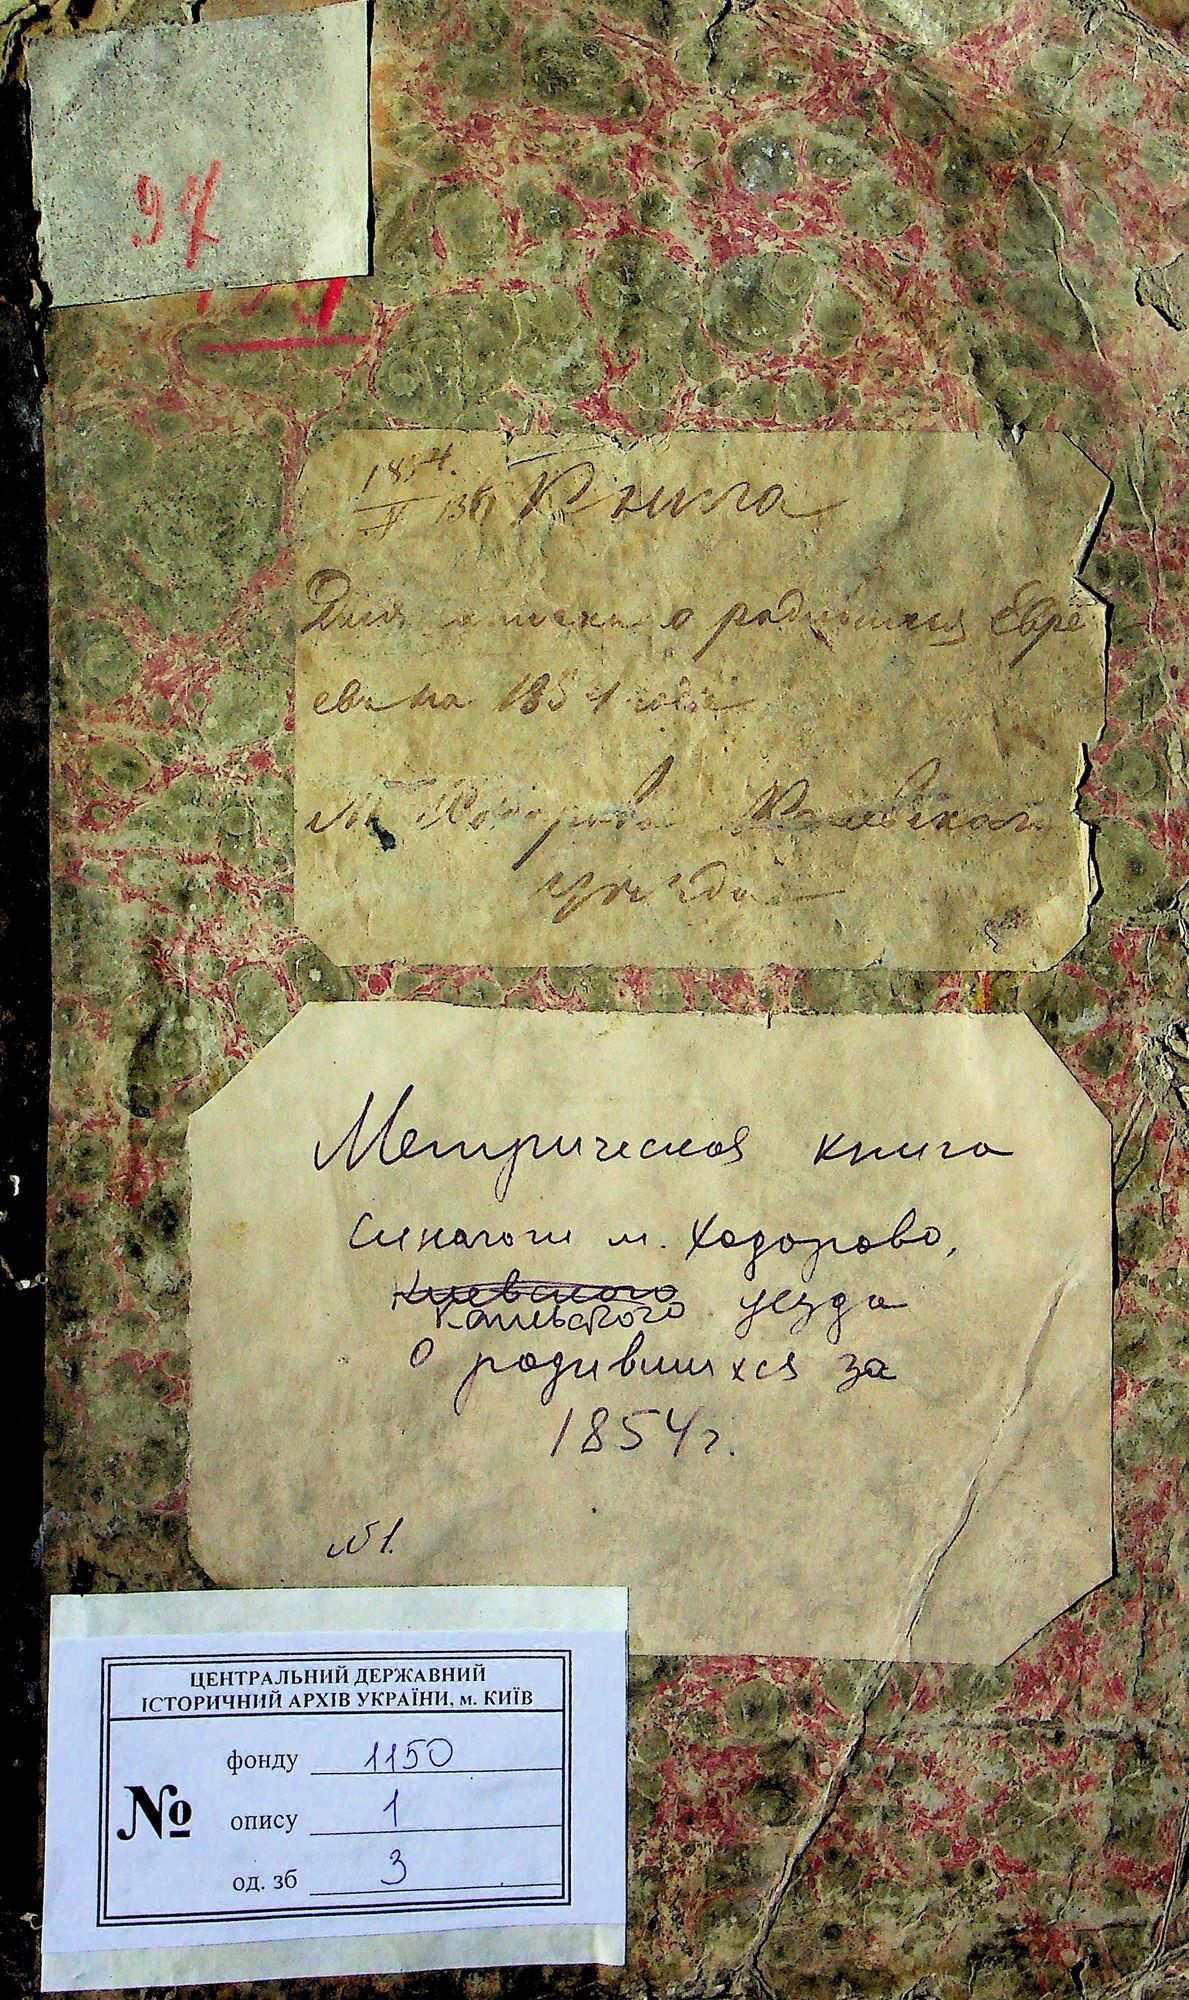 97
1854. Книга
II
Для записки о родившихся Евре
евъ на 1854 годъ
М. Ходорова Киевскаго
уезда
Метрическая книга
синагоги м. Ходорово,
Киевского
Каневского уезда
О родившихся за
1854 г.
№1.
ЦЕНТРАЛЬНИЙ ДЕРЖАВНИЙ
ІСТОРИЧНИЙ АРХІВ УКРАЇНИ, м. КИЇВ
№
фонду 1150
опису 1
од. зб 3